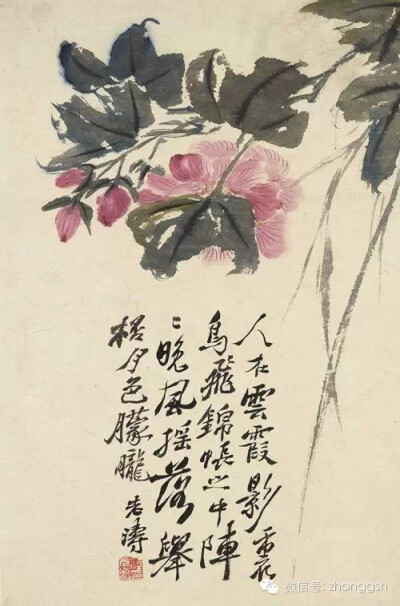 人在雲霞影
鳥飛錦帳之中陣
〻晚風搖落舉
夕色朦朧 老濤
微信号: zhonggsh